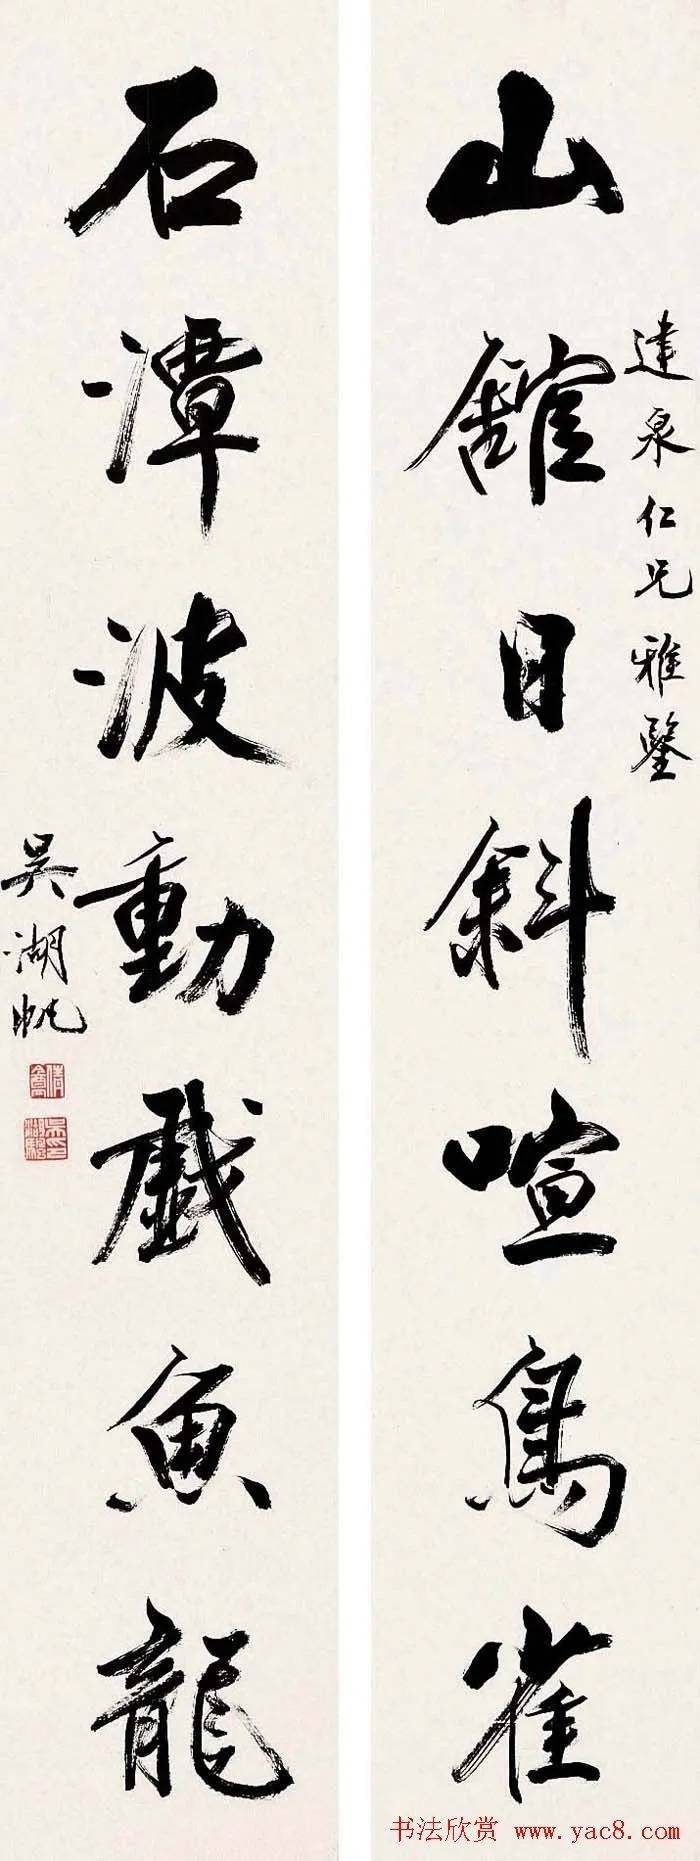 建泉仁兄雅鑒
山館日斜喧鳥雀
石潭波動戲魚龍
吳湖帆
书法欣赏 www.yac8.com